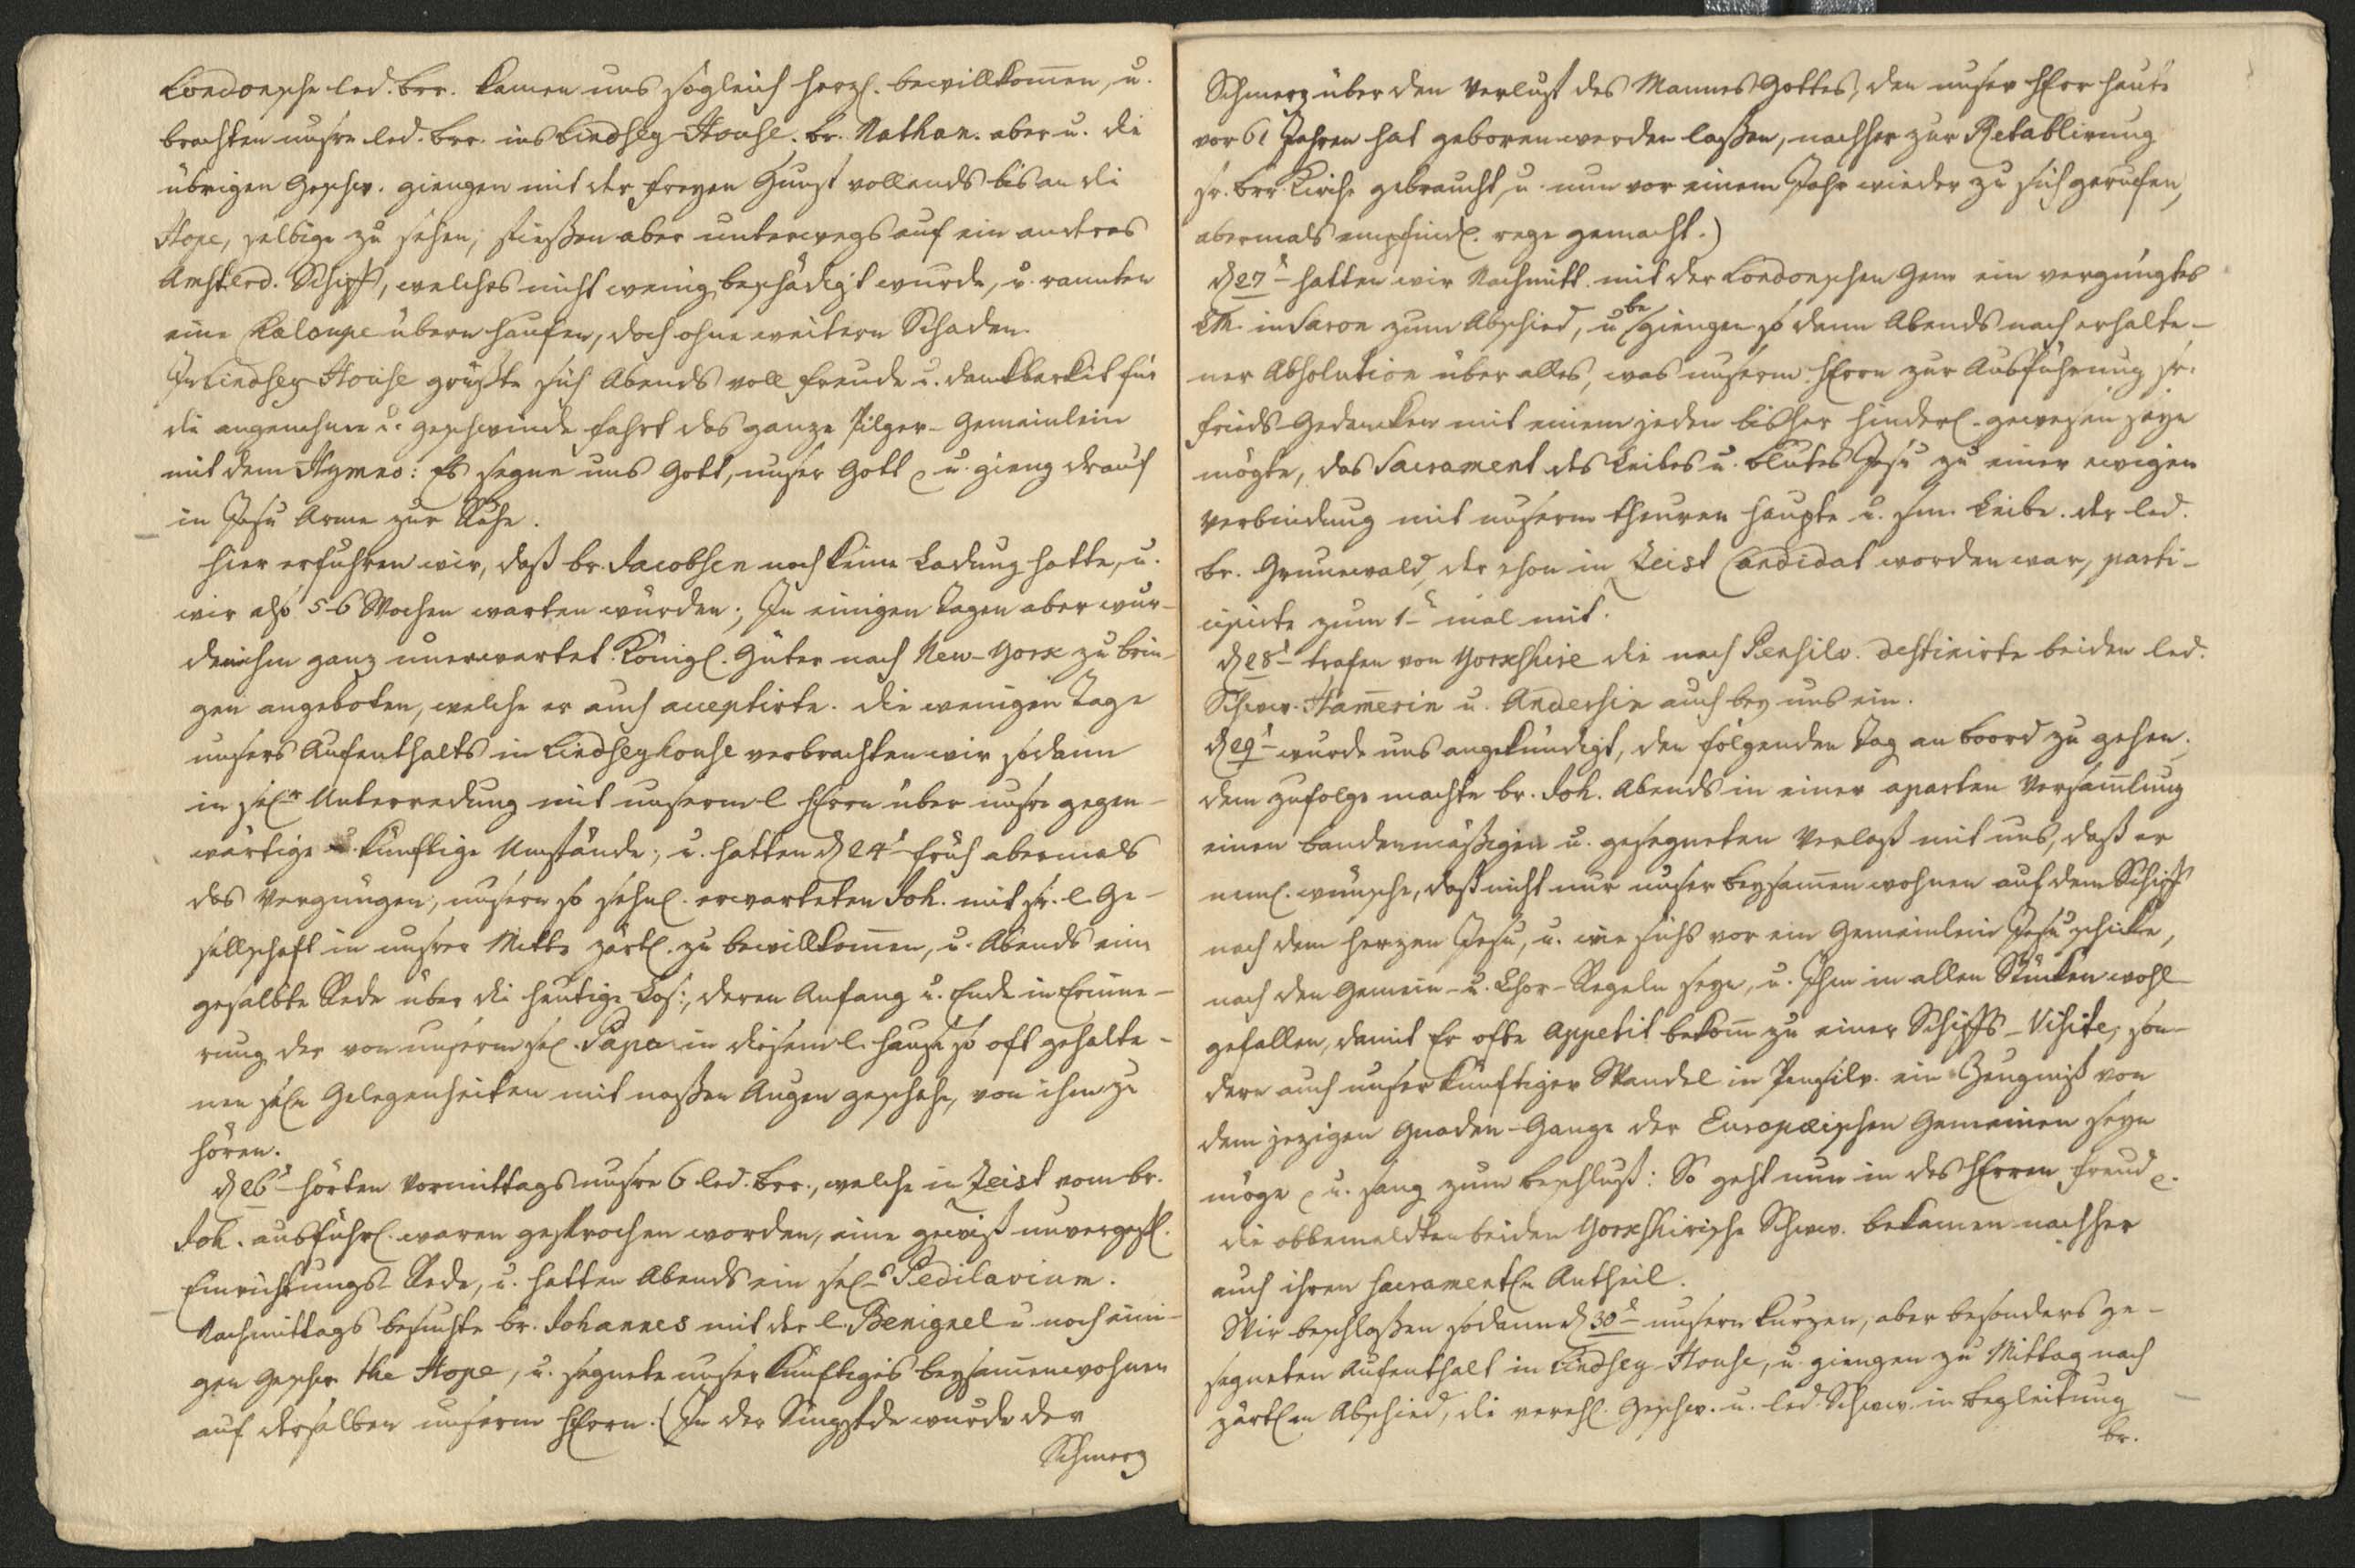 Londonsche led. Brr. kamen uns sogleich herzl. bewillkom̄en, u.
brachten unsre led. Brr. ins Lindsey-House. Br. Nathan. aber u. die
übrigen Geschw. giengen mit der freyen Gunst vollends bis an die
Hope, selbige zu sehen; stießen aber unterwegs auf ein andres
Amsterd. Schiff, welches nicht wenig beschädigt wurde, u. rannten
eine Kaloupe übern Haufen, doch ohne weitern Schaden.
In Lindsey-House grüßte sich Abends voll Freude u. Dankbarkeit für
die angenehme u. geschwinde Fahrt das ganze Pilger-Gemeinlein
mit dem Hymno: Es segne uns Gott, unser Gott ꝛ u. gieng drauf
in Jesu Arme zur Ruhe.
Hier erfuhren wir, daß Br. Jacobsen noch keine Ladung hatte, u.
wir also 5-6 Wochen warten würden; In einigen Tagen aber wur-
den ihm ganz unerwartet Königl. Güter nach New-York zu brin-
gen angeboten, welche er auch acceptirte. Die wenigen Tage
unsers Aufenthalts in Lindseyhouse verbrachten wir sodann
in selr Unterredung mit unserm l. HErrn über unsre gegen-
wärtige u. künftige Umstände; u. hatten d 24t früh abermals
das Vergnügen, unsern so sehnl. erwarteten Joh. mit sr. l. Ge-
sellschaft in unsrer Mitte zärtl. zu bewillkom̄en, u. Abends eine
gesalbte Rede über die heutige Los:, deren Anfang u. Ende in Erinne-
rung der von unserm sel. Papa in diesem l. Hause so oft gehalte-
nen seln Gelegenheiten mit naßen Augen geschahe, von ihm zu
hören.
d 26t hörten Vormittags unsre 6 led. Brr., welche in Zeist vom Br.
Joh. ausführl. waren gesprochen worden, eine gewiß unvergeßl.
Einrichtungs-Rede, u. hatten Abends ein sels Pedilavium.
Nachmittags besuchte Br. Johannes mit der l. Benignel u. noch eini-
gen Geschw. the Hope, u. segnete unser künftiges beysam̄enwohnen
auf derselben unserm HErrn. (In der Singstde wurde der
Schmerz
Schmerz über den Verlust des Mannes Gottes, den unser HErr heute
vor 61 Jahren hat geboren werden laßen, nachher zur Retablirung
sr. Brr. Kirche gebraucht, u. nun vor einem Jahr wieder zu sich gerufen,
abermals empfindl. rege gemacht.)
d 27t hatten wir Nachmitt. mit der Londonschen Gem ein vergnügtes
LM. in Saron zum Abschied, u. begiengen so dann Abends nach erhalte-
ner Absolution über alles, was unserm HErrn zur Ausführung sr.
Frieds-Gedancken mit einem jeden bisher hinderl. gewesen seyn
mögte, das Sacrament des Leibes u. Blutes Jesu zu einer ewigen
Verbindung mit unserm theuren Haupte u. sm. Leibe. Der led.
Br. Grunewald, der schon in Zeist Candidat worden war, parti-
cipirte zum 1t mal mit.
d 28t trafen von Yorkshire die nach Pensilv. destinirte beiden led.
Schww. Ham̄erin u. Andersin auch bey uns ein.
d 29t wurde uns angekündigt, den folgenden Tag an Boord zu gehen;
dem zufolge machte Br. Joh. Abends in einer aparten Versam̄lung
einen bandenmäßigen u. gesegneten Verlaß mit uns, daß er
neml. wünsche, daß nicht nur unser beysam̄en wohnen auf dem Schiff
nach dem Herzen Jesu, u. wie sichs vor ein Gemeinlein Jesu schicke,
nach den Gemein- u. Chor-Regeln seye, u. Ihm in allen Stücken wohl-
gefallen, damit Er ofte Appetit bekom̄ zu einer Schiffs-Visite; son-
dern auch unser künftiger Wandel in Pensilv. ein Zeugniß von
dem jezigen Gnaden-Gange der Europæischen Gemeinen seyn
möge ꝛ u. sang zum Beschluß: So geht nun in des HErren Freud ꝛ.
Die obbemeldten beiden Yorkshirische Schww. bekamen nachher
auch ihren sacramentln Antheil.
Wir beschloßen sodann d 30t unsern kurzen, aber besonders ge-
segneten Aufenthalt in Lindsey-House, u. giengen zu Mittag nach
zärtlm Abschied, die verehl. Geschw. u. led. Schww. in Begleitung
Br.